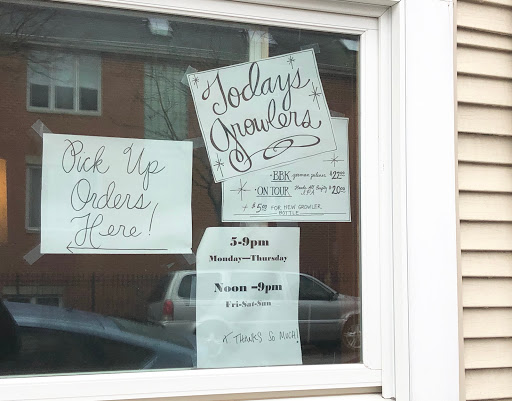 Pick Up
Orders
Here!
Today's
Growlers
• BBK german pilsner $22.00
• ON TOUR IPA $20.00
+ $5.00 FOR NEW GROWLER
BOTTLE
5-9pm
Monday—Thursday
Noon –9pm
Fri-Sat-Sun
THANKS SO MUCH!